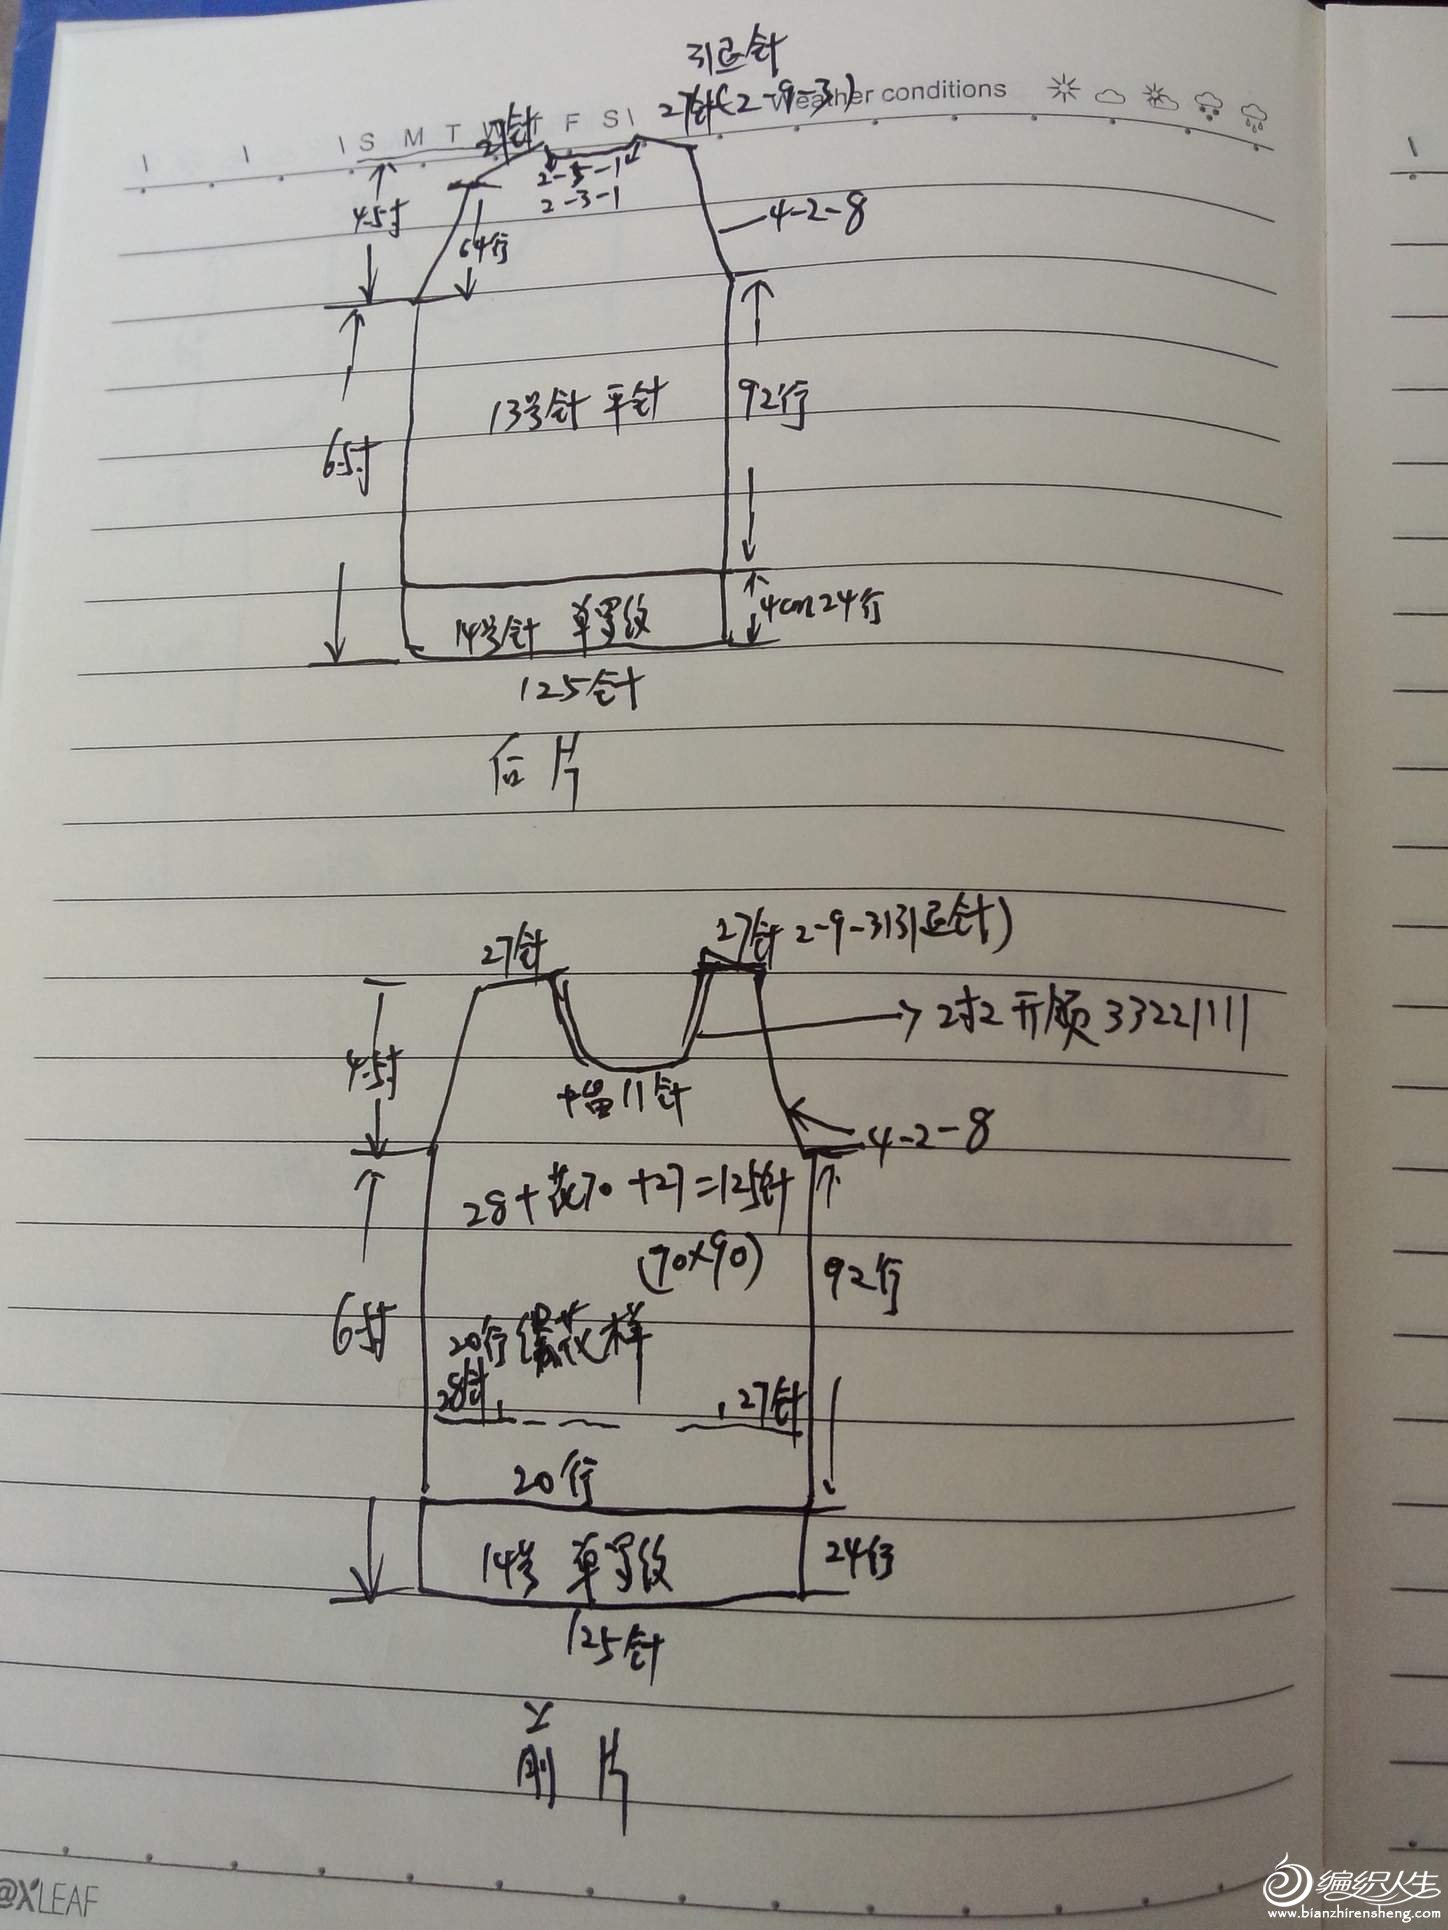 引返针
27针(2-9-3)
Weather conditions
S M T W T F S
27针
2-5-1
2-3-1
4-2-8
4.5寸
64行
13号针 平针
92行
6.5寸
14号针 单罗纹
4cm 24行
125针
后片
27针
27针 2-9-3(引返针)
2寸2 开领 33221111
4.5寸
中留11针
4-2-8
28+花70+27=125针
(70×90)
92行
6.5寸
20行 花样
28针
27针
20行
14号 单罗纹
24行
125针
前片
@XLEAF
编织人生
www.bianzhirensheng.com